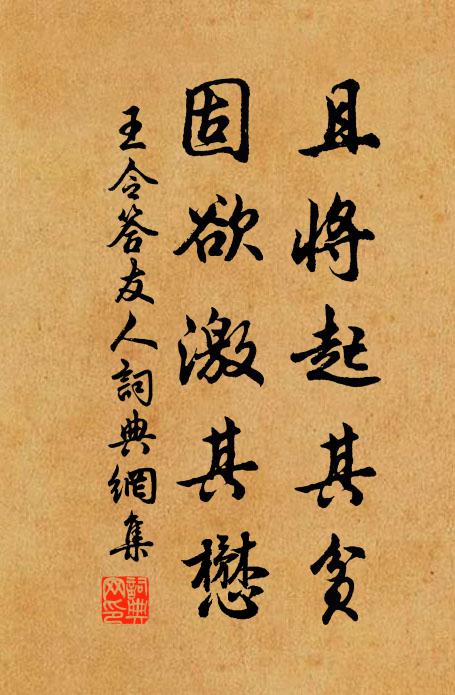 且将起其貧
固欲激其懋
王令答友人詞典網集
詞典網印